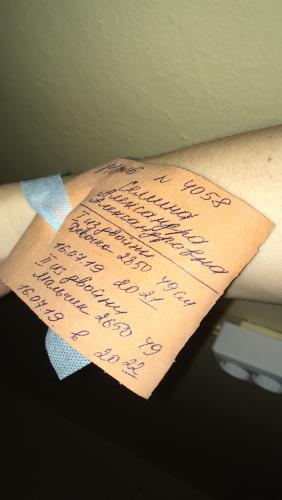 N 4058
Семина
Александра
Александровна
I из двойни
Девочка 2350 49 см
16.07.19 20 21
II из двойни
Мальчик 2650 49
16.07.19 в 20 22